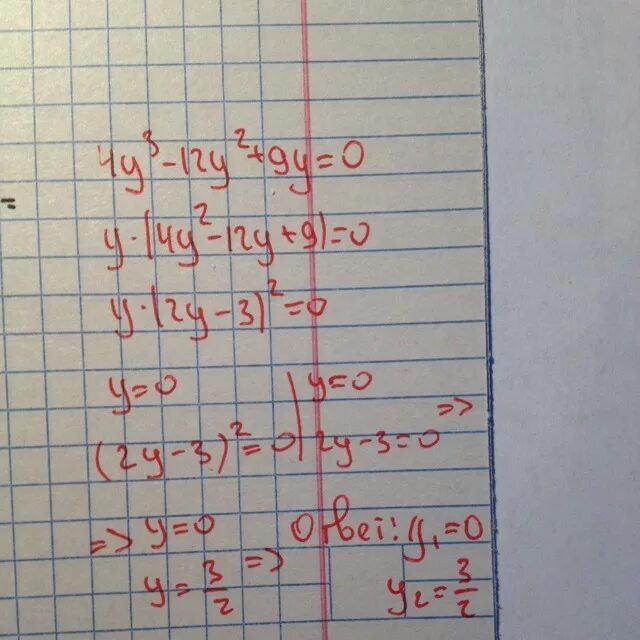 4y³-12y²+9y=0
y·(4y²-12y+9)=0
y·(2y-3)²=0
y=0 | y=0
(2y-3)²=0 | 2y-3=0 =>
=> y=0 Ответ: y₁=0
y=3/2 => y₂=3/2